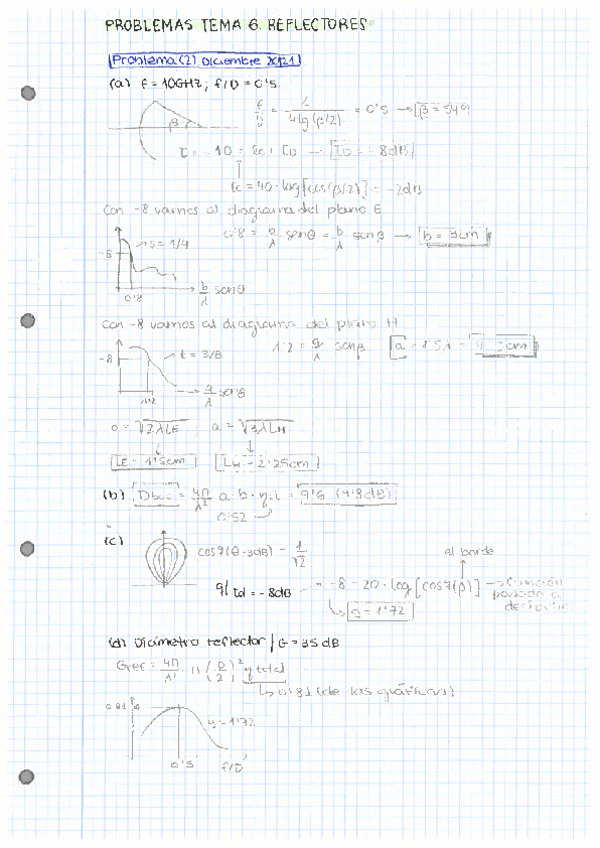 PROBLEMAS TEMA 6. REFLECTORES
Problema (2) Diciembre XX21
(a) f = 10GHz; f/D = 0'5
f/D = 1/(4tg(β/2)) = 0'5 → β = 54º
β
τ = -10 = τc + τD → τD = -8dB
τc = 40·log[cos(β/2)] = -2dB
Con -8 vamos al diagrama del plano E
s = 1/4
0'8 = b/λ senθ = b/λ senβ → b = 3cm
0'8
b/λ senθ
Con -8 vamos al diagrama del plano H
-8
t = 3/8
1'2 = a/λ senβ
a = 1'5λ =
a/λ senθ
1'2
b = √2λLE
a = √3λLH
LE = 4'5cm
LH = 2'25cm
(b) Dboc = 4π/λ² a·b·ηil = 9'5 (9'8dB)
0'52
(c)
cos q(θ-3dB) = 1/√2
al borde
q| τd = -8dB
= -8 = 20·log[cos q(β)] →
q = 1'72
(d) Diámetro reflector / G = 35 dB
Gref = 4π/λ² π(D/2)² ηtotal
0'81 (de las gráficas)
0'81
q = 1'72
0'5
f/D